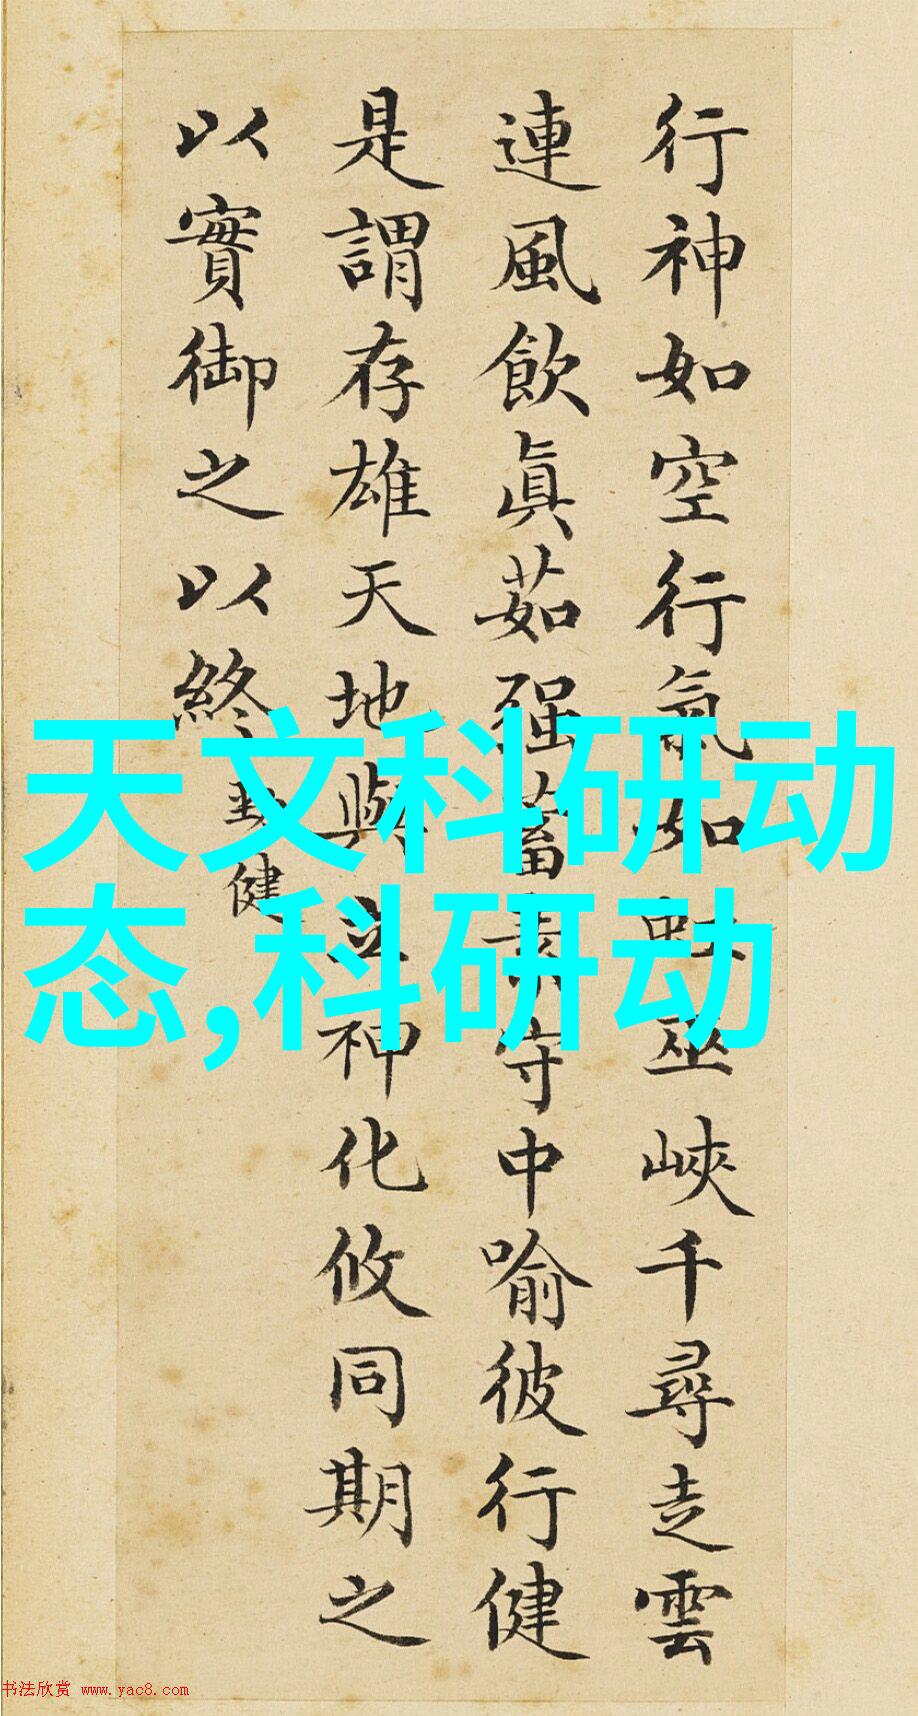 行神如空行氣如虹巫峽千尋走雲
連風飲眞茹强蓄素守中喻彼行健
是謂存雄天地與立神化攸同期之
以實御之以終 勁健
天文科研动
态,科研动
书法欣赏 www.yac8.com